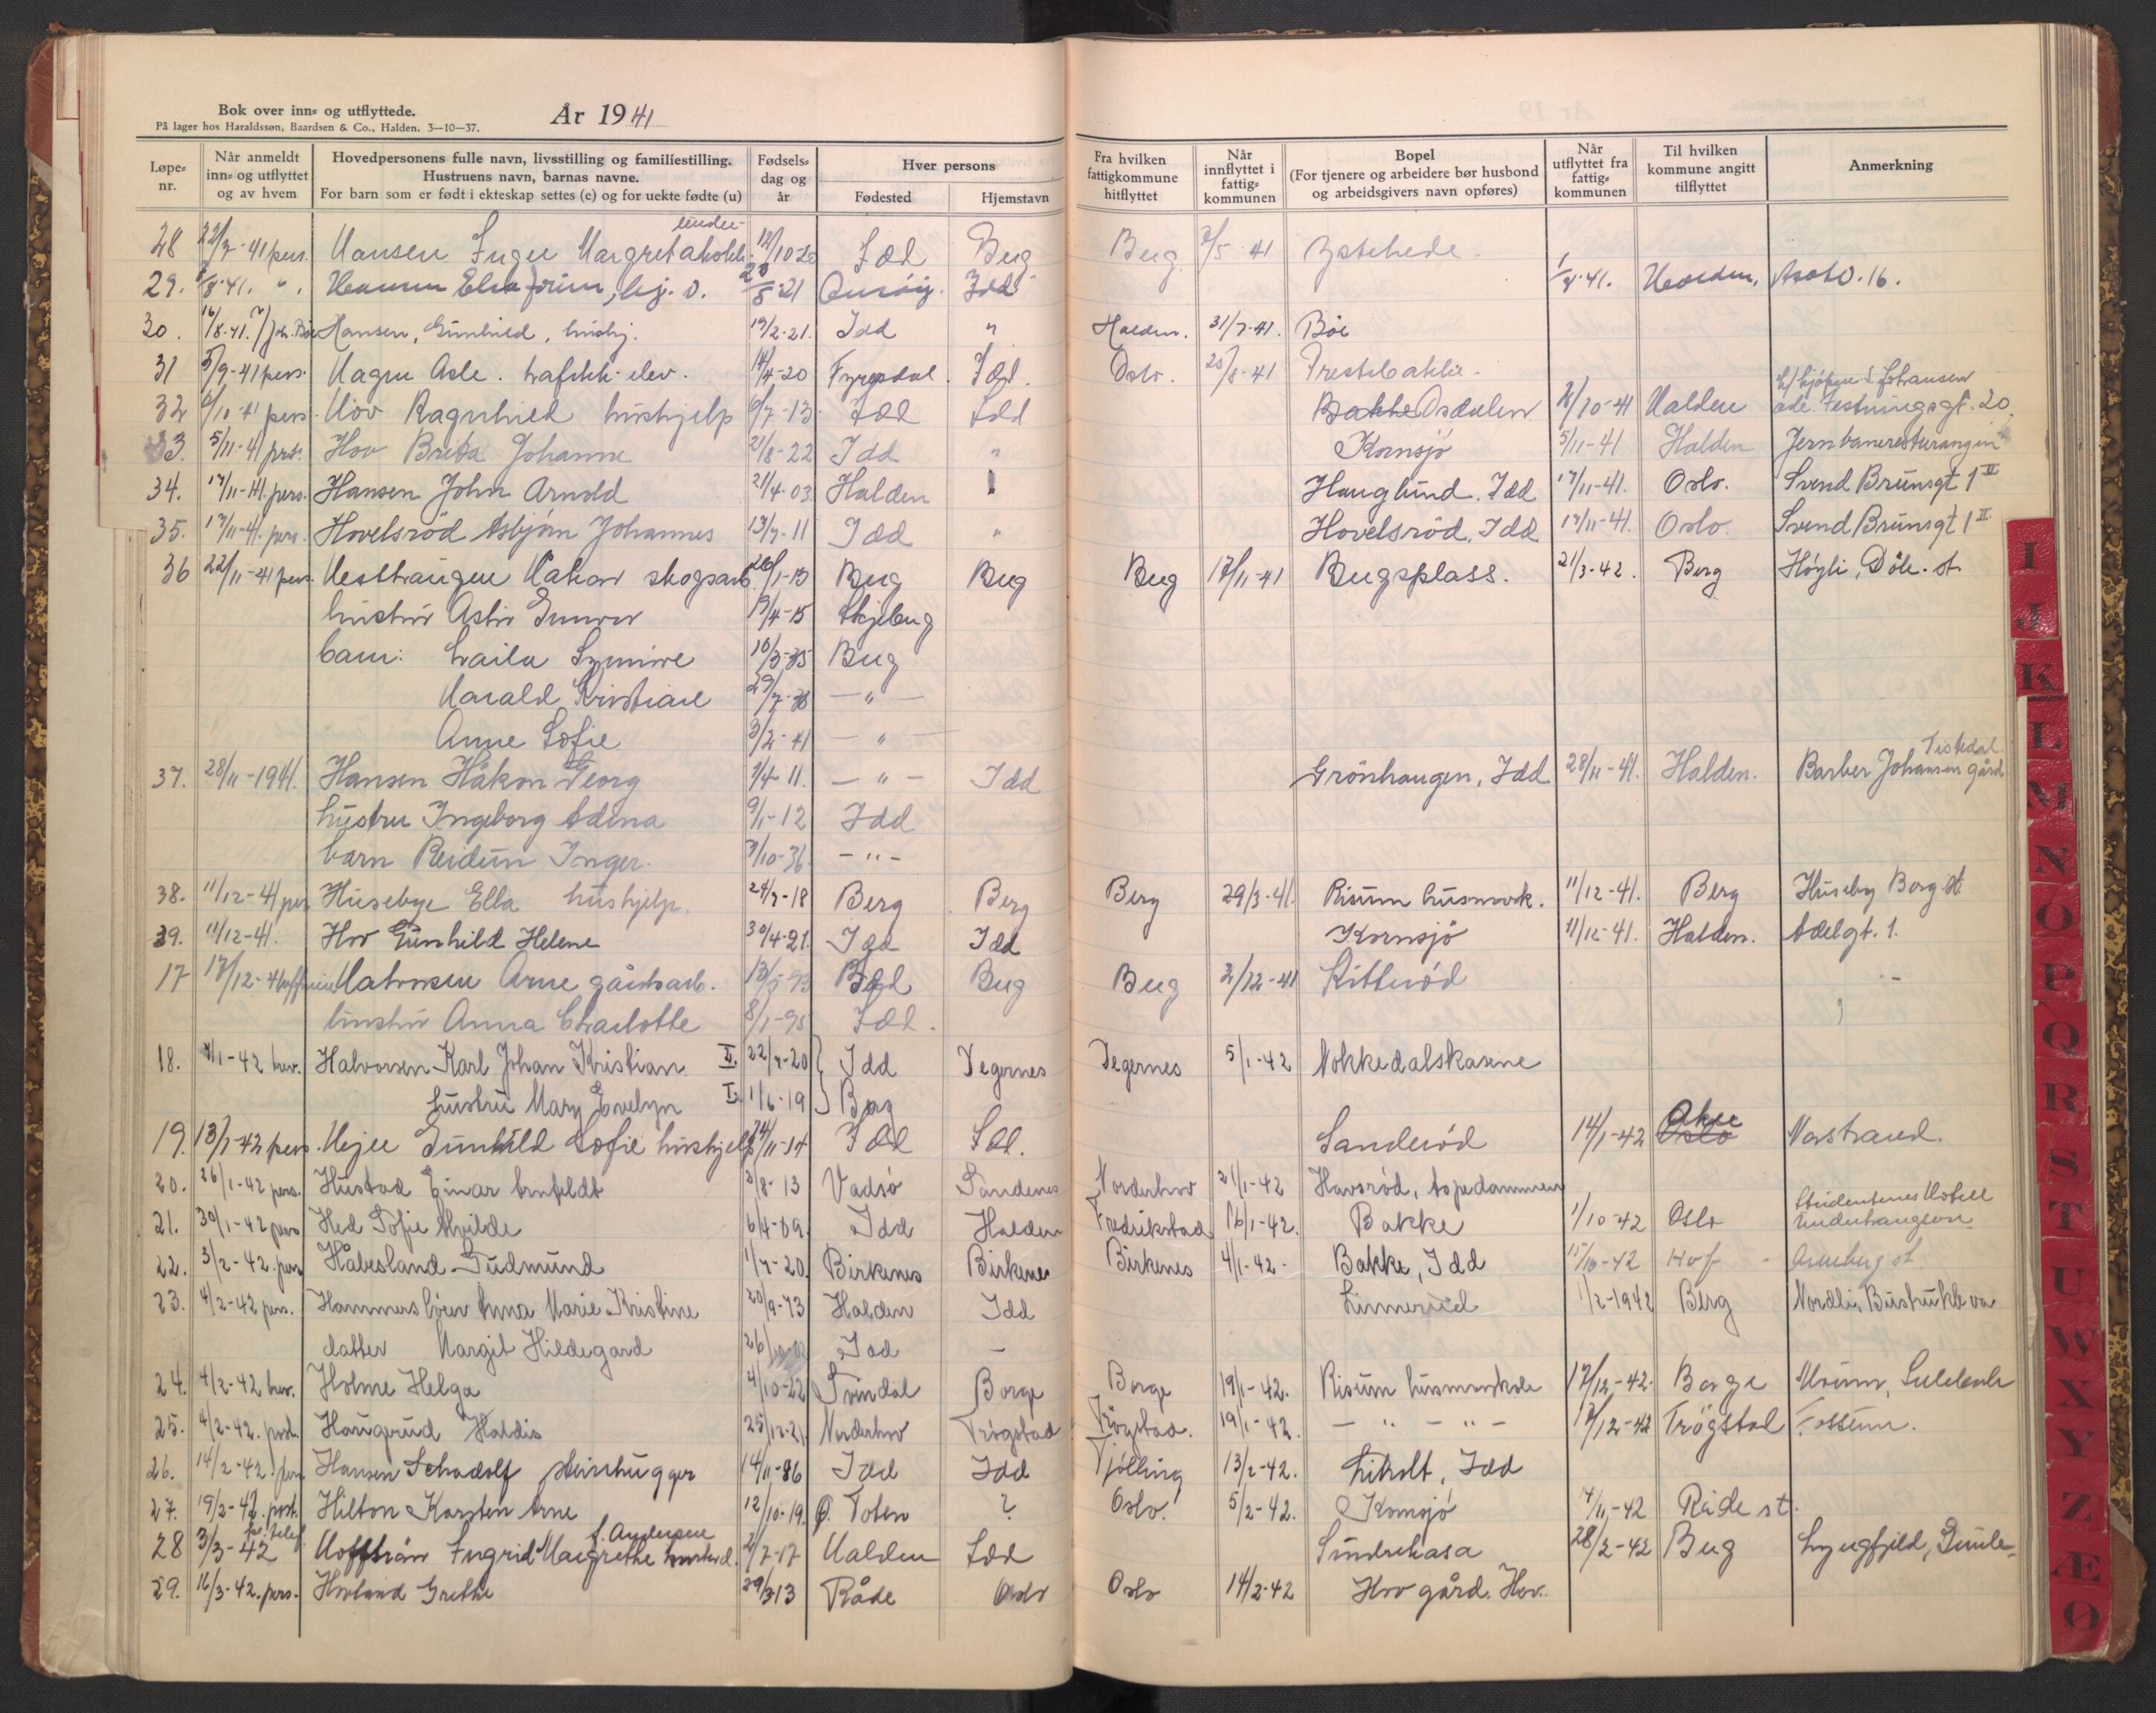 Bok over inn- og utflyttede.
På lager hos Haraldssøn, Baardsen & Co., Halden. 3—10—37.
År 1941
Løpe-nr. Når anmeldt inn- og utflyttet og av hvem Hovedpersonens fulle navn, livsstilling og familiestilling. Hustruens navn, barnas navne. For barn som er født i ekteskap settes (e) og for uekte fødte (u) Fødsels-dag og år Hver persons Fødested Hjemstavn Fra hvilken fattigkommune hitflyttet Når innflyttet i fattig-kommunen Bopel (For tjenere og arbeidere bør husbond og arbeidsgivers navn opføres) Når utflyttet fra fattig-kommunen Til hvilken kommune angitt tilflyttet Anmerkning
28 22/7-41 pers. Hansen Inger Margret Idd Berg Berg 2/5 41 Ystehede
29. 1/8-41. " 20/8-21 Idd 1/8-41. Halden,
30. 16/8-41. Hansen, Gunhild, hushj. 19/2-21. Idd " Halden. 31/7-41. Bøe
31 5/9-41 pers. Hagen Asle. elev. 14/4-20 Fyresdal Idd. Oslo. 20/8-41 Prestebakke
32 6/10-41 pers. Hov Ragnhild hushjelp 6/7-13 Idd Idd Bakke 2/10-41 Halden Johansen Festningsgt. 20.
33. 5/11-41 prs. Hov Brita Johanne 21/8-22 Idd " Kornsjø 5/11-41 Halden Jernbaneresturangen
34. 17/11-41. pers. Hansen John Arnold 21/4-03 Halden Hauglund. Idd 17/11-41. Oslo. Svend Brunsgt 1 II
35. 17/11-41. pers. Hovelsrød Asbjørn Johannes 13/7-11 Idd " Hovelsrød. Idd 17/11-41. Oslo. Svend Brunsgt 1 II
36 22/11-41 pers. Hesthaugen Håkon skogsarb. 26/1-13 Berg Berg Berg 17/11-41 Bergsplass. 21/3-42. Berg Høgli, Døle. st.
hustru Gunvor 19/4-15 Skjeberg
barn: Laila Synnøve 10/3-35 Berg
Harald Kristian 29/7-38 — " —
Anne Sofie 3/2-41 — " —
37. 28/11-1941. Hansen Håkon Georg 7/4-11. — " — Idd Grønhaugen, Idd 28/11-41. Halden. Barber Johansen gård Tistedal.
hustru Ingeborg Adina 9/1-12 Idd
barn Reidun Inger. 3/10-36. — " —
38. 11/12-41 pers Huseby Ella hushjelp. 24/7-18 Berg Berg Berg 29/3-41. Risum husmorsk. 11/12-41. Berg Huseby Berg st
39. 11/12-41. Hov Gunhild Helene 30/4-21. Idd Idd Kornsjø 11/12-41. Halden. Adelgt. 1.
17 17/12-41 Halvorsen Arne gårdsarb. 13/5-93 Idd Berg Berg 2/12-41 Kitterød
hustru Anna Charlotte 8/1-95 Idd.
18. 7/1-42 brev. Halvorsen Karl Johan Kristian II. 22/7-20 Idd Degernes Degernes 5/1-42 Nokkedalskasene
hustru Mary Evelyn I. 1/6-19 Berg
19. 13/1-42 pers. Heje Gunhild Sofie hushjelp 24/11-14 Idd Idd. Sanderød 14/1-42 Oslo Aker Norstrand.
20. 26/1-42 pers. Hustad Einar Arnfeldt 3/8-13 Vadsø Sandnes Norderhov 21/1-42 Havsrød, Aspedammen
21. 30/1-42 pers Hed Sofie Hvilde 6/4-09. Idd Halden Fredrikstad 16/1-42. Bakke 1/10-42 Oslo Studentenes Hotell Underhaugsvn.
22. 3/2-42. pers Håbesland Gudmund 1/7-20. Birkenes Birkenes Birkenes 4/1-42- Bakke, Idd 15/10-42 Hof st.
23. 4/2-42 pers. Anna Marie Kristine 20/9-73 Halden Idd Linnerud 1/2-1942 Berg Nordli,
datter Margit Hildegard Idd —
24. 4/2-42 brev. Holme Helga 4/10-22 Svindal Borge Borge 19/1-42. Risum husmorskole 17/12-42. Borge
25. 4/2-42. post. Haugrud Haldis 25/12-21 Norderhov Trøgstad Trøgstad. 19/1-42. — " — " — 17/12-42 Trøgstad Fossum.
26. 14/2-42. pers Hansen Schadolf Steinhugger 14/11-86 Idd Idd Tjølling 13/2-42. Liholt, Idd
27. 19/2-42. post. Hilton Karsten Arne 12/10-19. Ø. Toten ? Oslo. 5/2-42. Kornsjø 4/11-42 Råde st.
28 3/3-42 pr. telef Ingrid Margrethe f. Andersen 2/7-17 Halden Idd 28/2-42 Berg Lyngfjeld,
29. 16/3-42. pers. Hovland Grethe 29/3-13 Råde Oslo Oslo 14/2-42 Hov gård. Hov.
I
J
K
L
M
N
O
P
Q
R
S
T
U
W
X
Y
Z
Æ
Ø